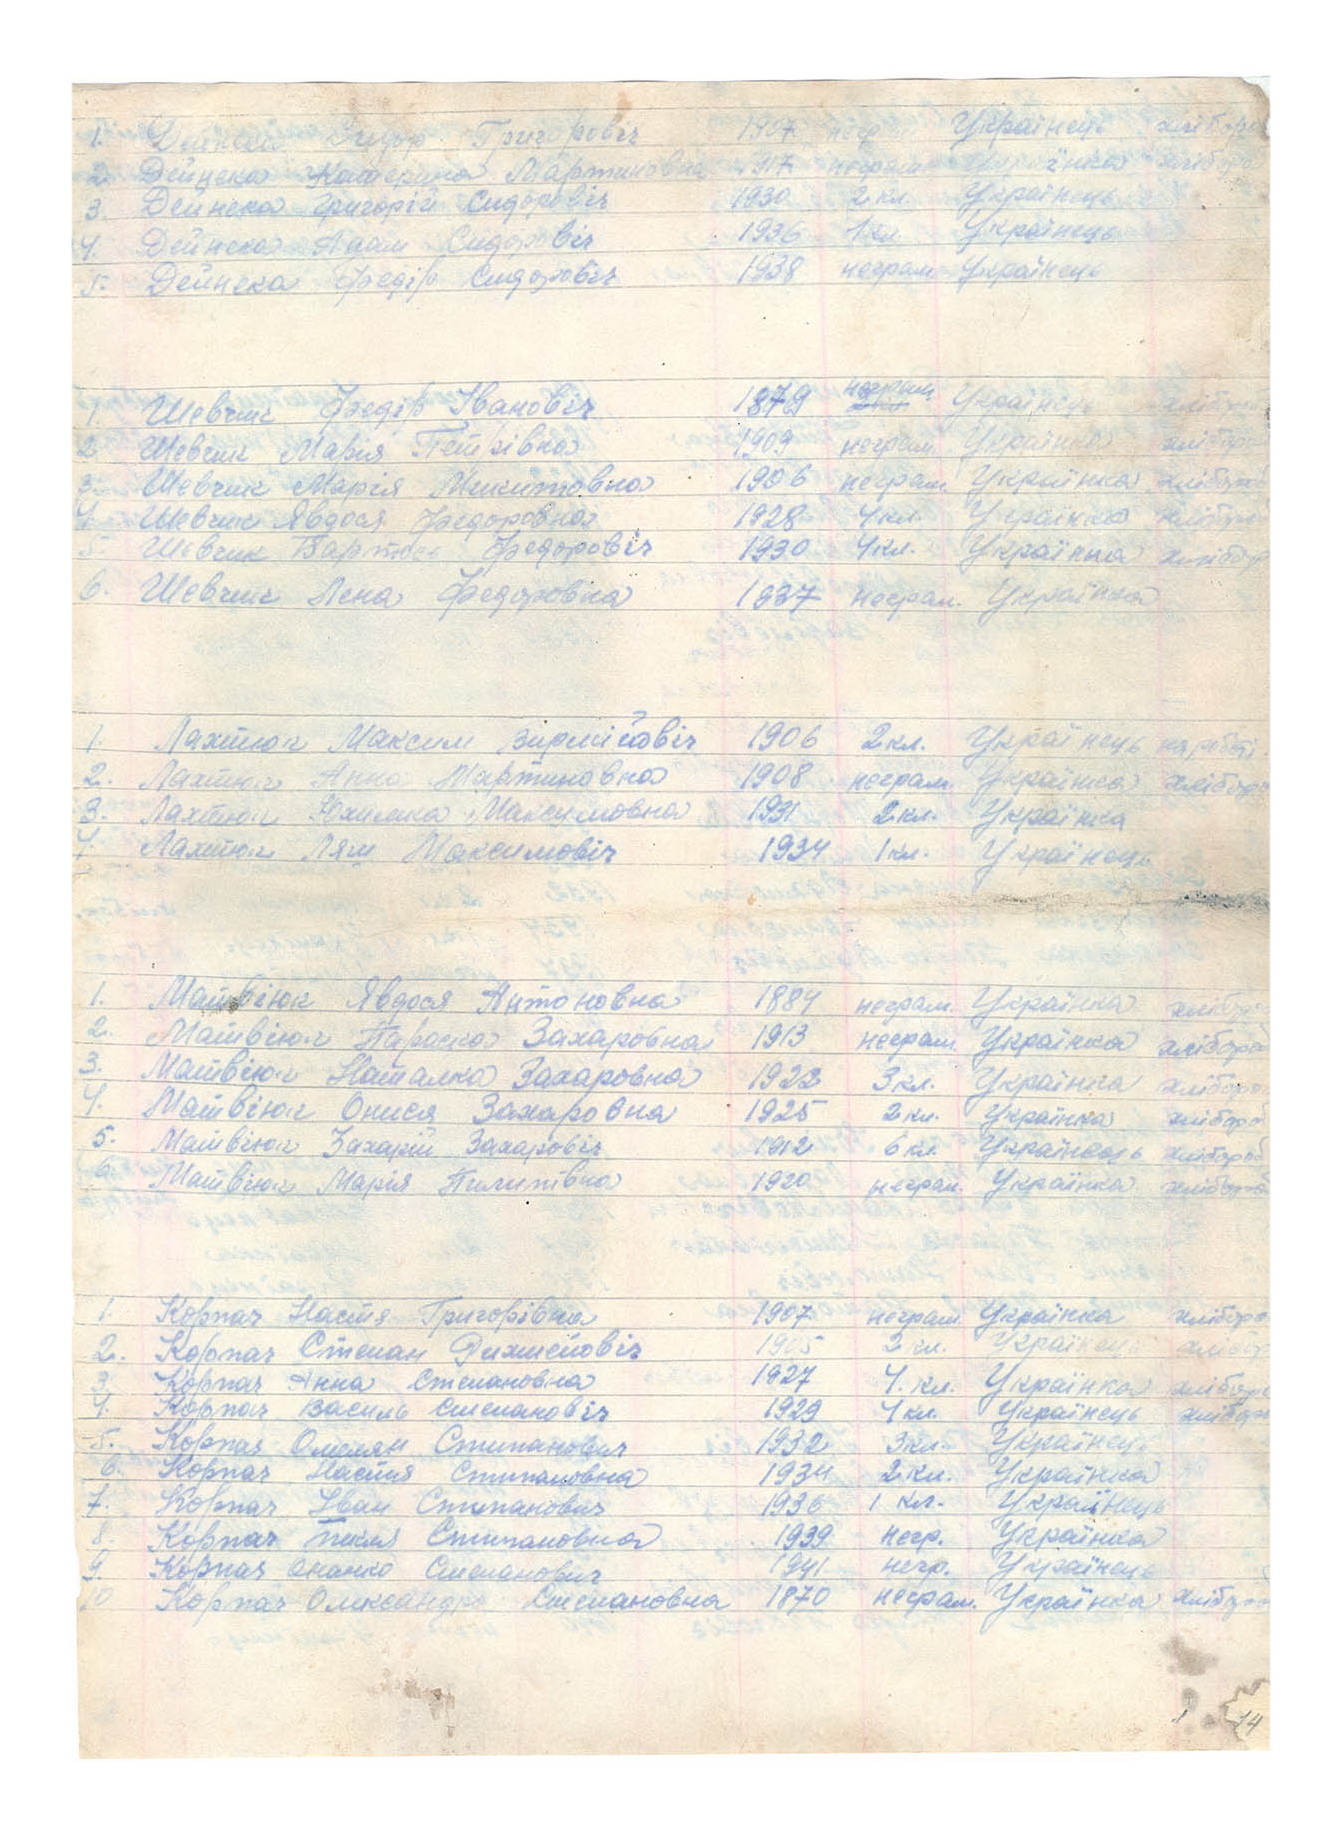 1. Дейнека Сидор Григоровіч 1907 неграм Українець хлібороб
2. Дейнека Катерина Мартиновна 1917 неграм Українка хлібороб
3. Дейнека Григорій Сидоровіч 1930 2 кл. Українець
4. Дейнека Адам Сидоровіч 1936 1 кл. Українець
5. Дейнека Федір Сидоровіч 1938 неграм Українець
1. Шевчик Федір Івановіч 1879 неграм Українець хлібороб
2 Шевчик Марія Петрівна 1909 неграм. Українка хлібороб
3. Шевчик Марія Микитовна 1906 неграм. Українка хлібороб
4. Шевчик Явдося Федоровна 1928 4 кл. Українка хлібороб
5. Шевчик Федоровіч 1930 4 кл. Українка хлібор
6. Шевчик Лена Федоровна 1937 неграм. Українка
1. Лахтюк Максим 1906 2 кл. Українець
2. Лахтюк Анна Мартиновна 1908 неграм. Українка хлібороб
3. Лахтюк Юхимка Максимовна 1931 2 кл. Українка
4. Лахтюк Максимовіч 1934 1 кл. Українець
1. Матвіюк Явдося Антоновна 1884 неграм. Українка хлібороб
2. Матвіюк Параска Захаровна 1913 неграм. Українка хлібороб
3. Матвіюк Наталка Захаровна 1922 3 кл. Українка хлібороб
4. Матвіюк Онися Захаровна 1925 2 кл. Українка хлібороб
5. Матвіюк Захарій Захаровіч 1912 6 кл. Українець хлібороб
6. Матвіюк Марія Пилипівна 1920 неграм. Українка хлібороб
1. Корпач Настя Григорівна 1907 неграм. Українка хлібороб
2. Корпач Степан 1905 2 кл. Українець хлібор
3. Корпач Анна Степановна 1927 4. кл. Українка хлібороб
4. Корпач Василь Степановіч 1929 4 кл. Українець хлібороб
5. Корпач Омелян Степанович 1932 3 кл. Українець
6. Корпач Настя Степановна 1934 2 кл. Українка
7. Корпач Іван Степанович 1936 1 кл. Українець
8. Корпач Степановна 1939 негр. Українка
9. Корпач Степанович 1941 негр. Українець
10 Корпач Олександра Степановна 1870 неграм. Українка хлібороб
14